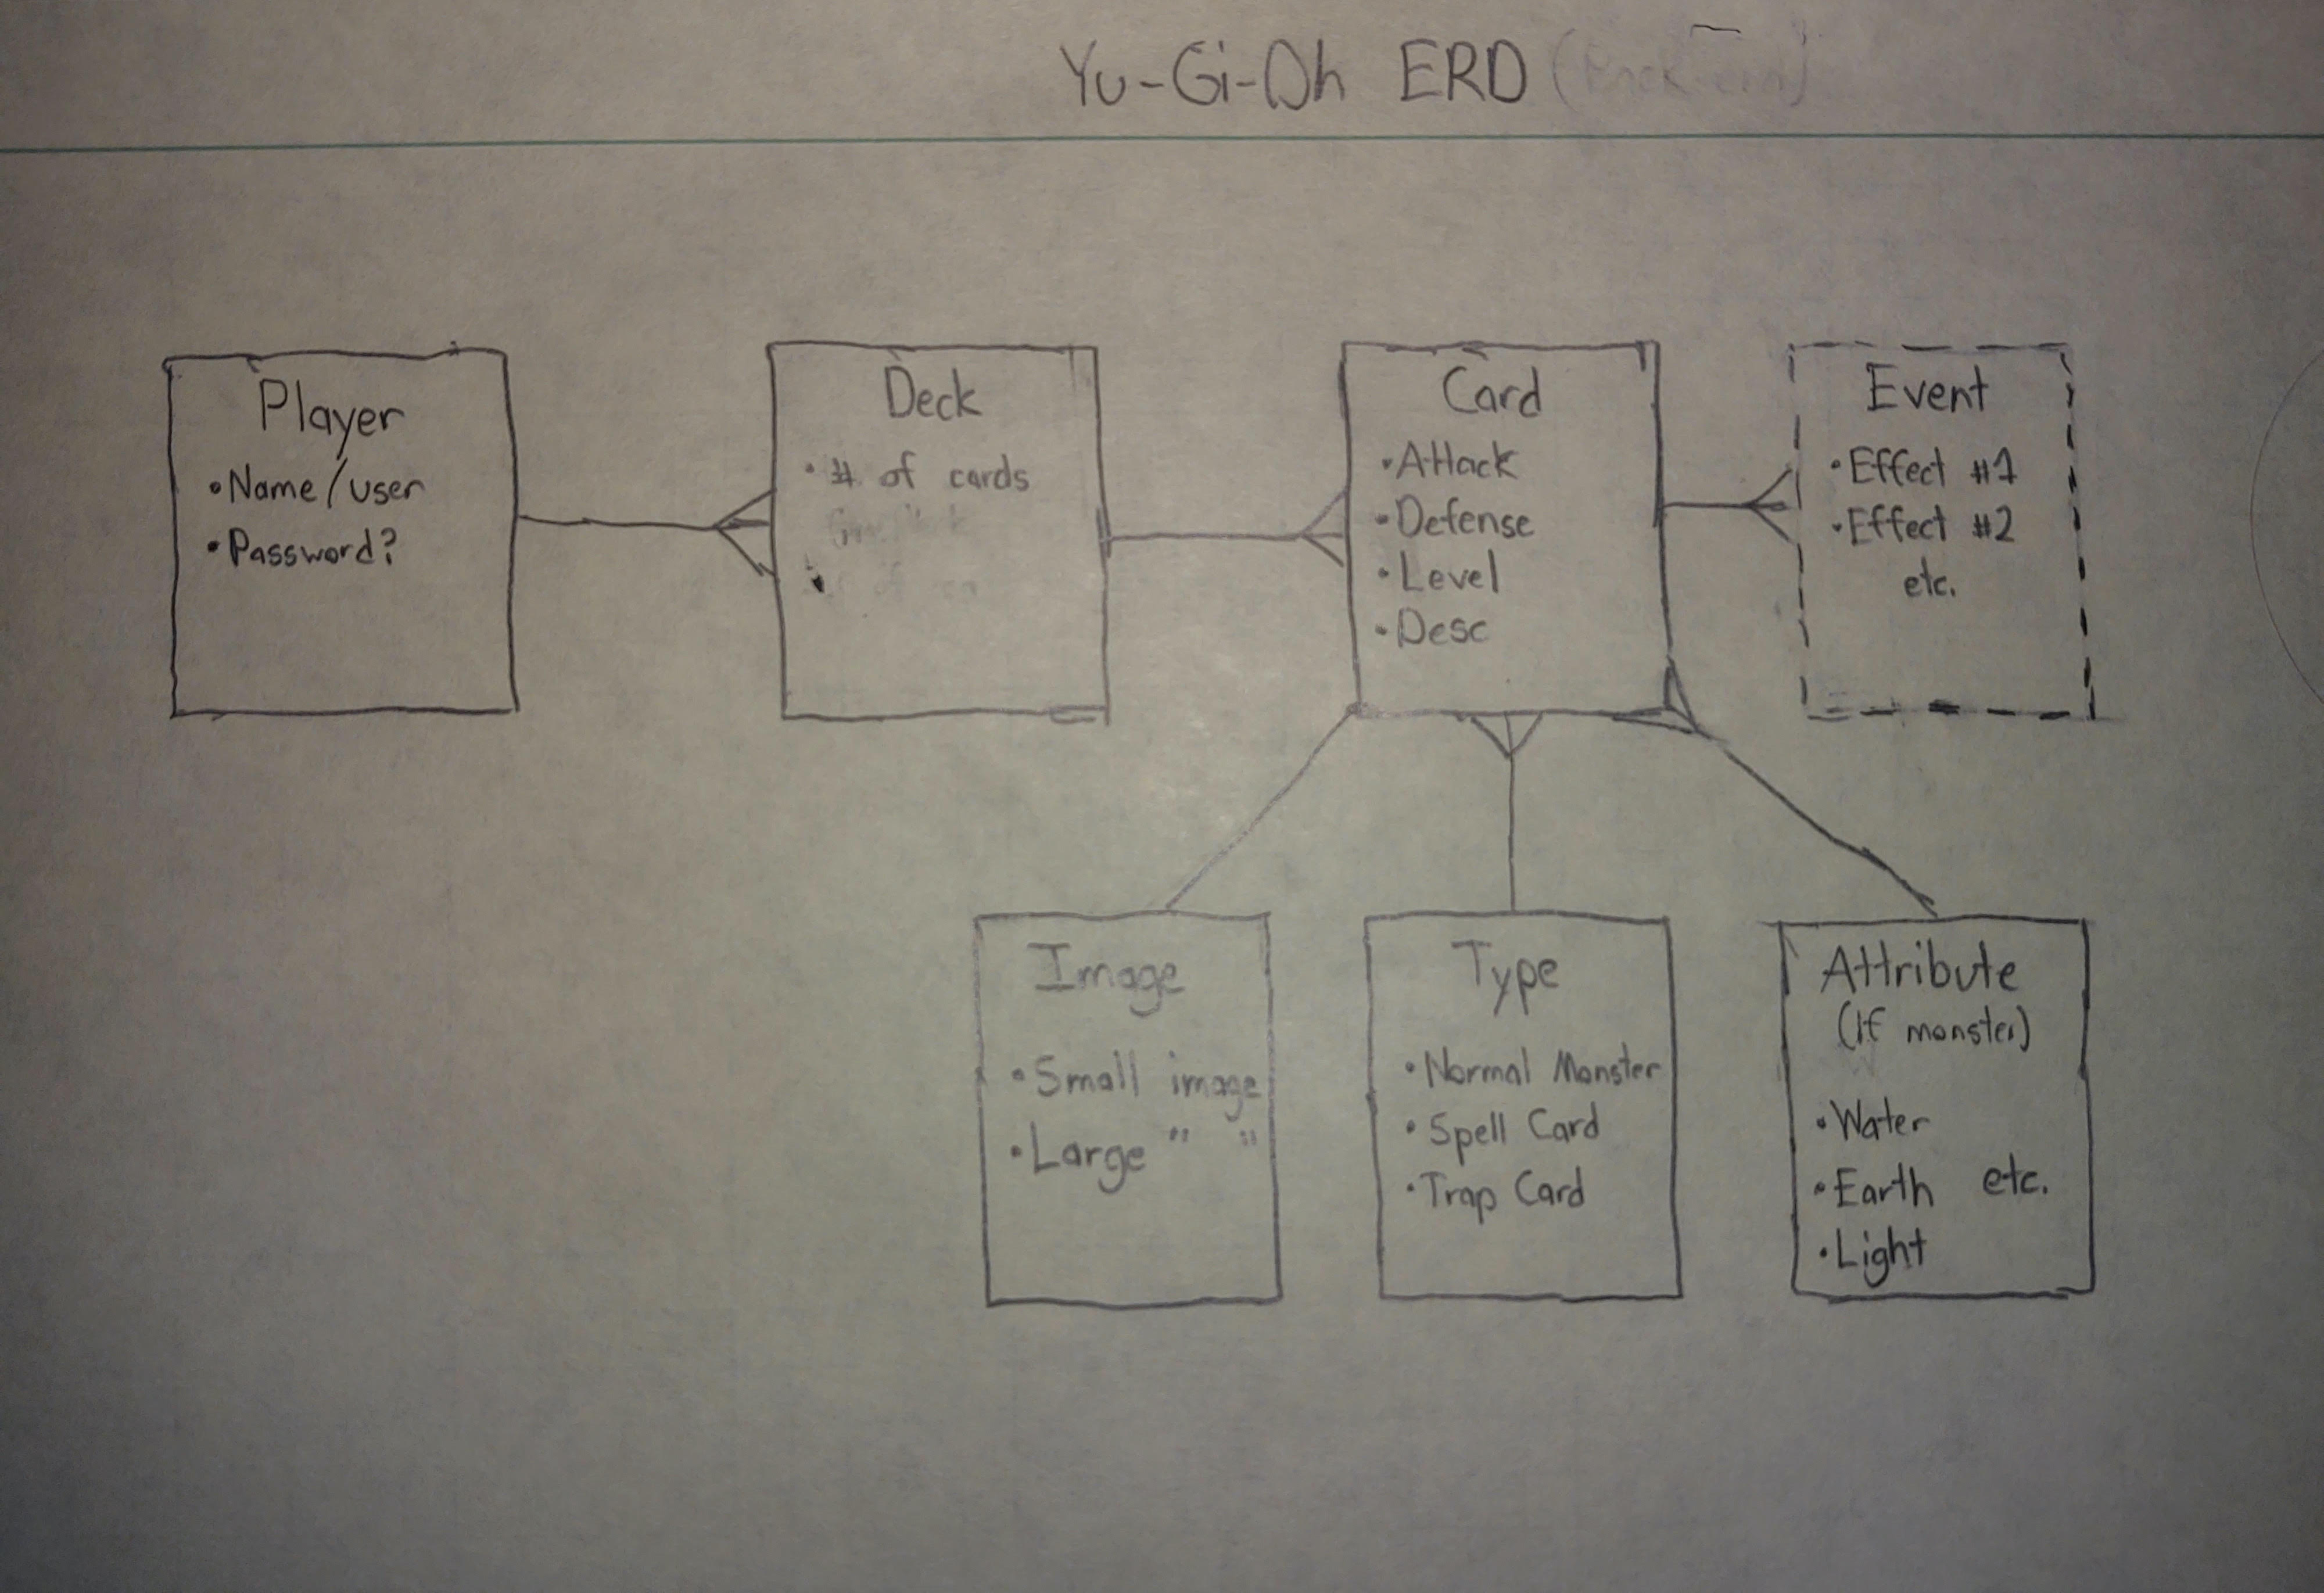 Yu-Gi-Oh ERD
Player
•Name/user
•Password?
Deck
•# of cards
Card
•Attack
•Defense
•Level
•Desc
Event
•Effect #1
•Effect #2
etc.
Image
•Small image
•Large " "
Type
•Normal Monster
•Spell Card
•Trap Card
Attribute
(if monster)
•Water
•Earth etc.
•Light